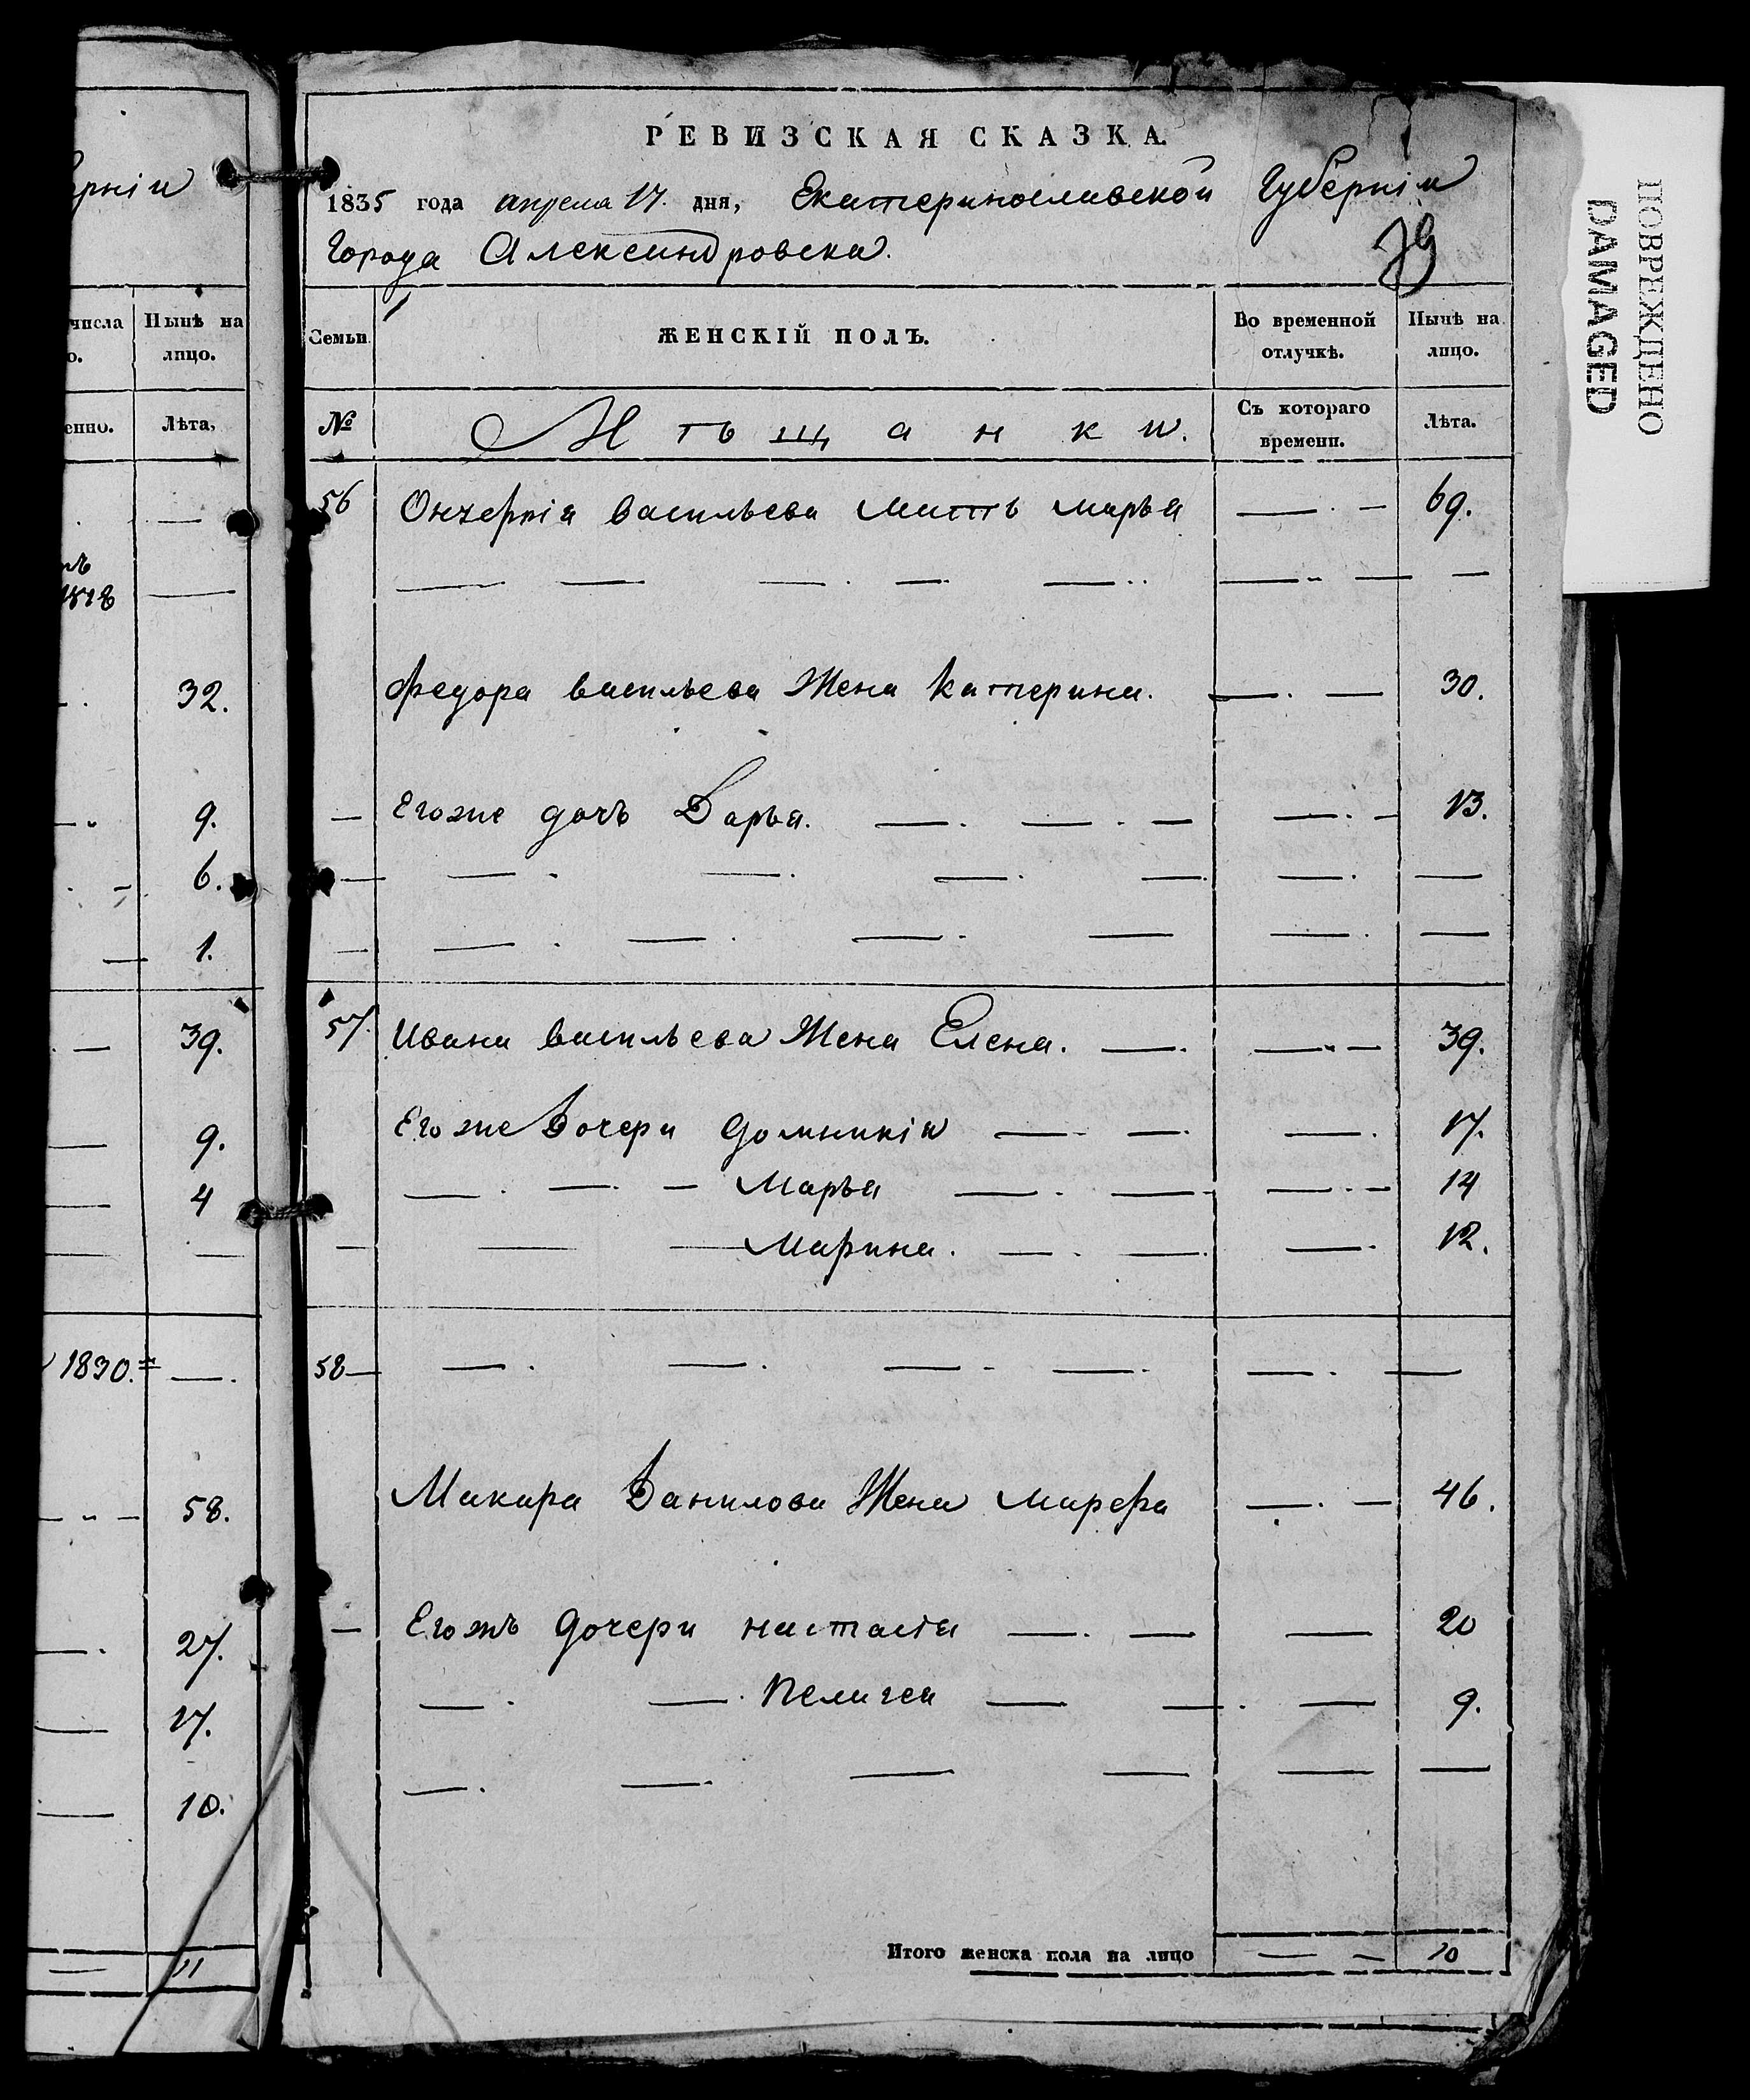 рніи
числа Нынѣ на
о. лицо.
енно. Лѣта,
—
1828 —
32.
9.
6.
1.
39.
9.
4
1830. —
58.
27.
17.
10.
11
РЕВИЗСКАЯ СКАЗКА.
1835 года апреля 17. дня, Екатеринославской Губерніи
Города Александровска.
79
Семьи ЖЕНСКІЙ ПОЛЪ. Во временной отлучкѣ. Нынѣ на лицо.
№ Мѣщанки. Съ котораго времени. Лѣта.
56 васильева мать марья — 69.
Федора васильева Жена Катерина. — 30.
— Егоже дочь Дарья. — 13.
57. Ивана васильева Жена Елена. — 39.
Егоже Дочери Домникія — 17.
— Марья — 14
— Марина. — 12.
58 —
Макара Данилова Жена марфа — 46.
— Егожъ Дочери настасія — 20
— Пелагея — 9.
Итого женска пола на лицо — 10
ПОВРЕЖДЕНО
DAMAGED